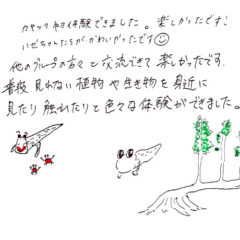 カヤック初体験できました。楽しかったです!
ハゼちゃんたちがかわいかったです☺
他のグループの方々と交流できて楽しかったです。
普段見れない植物や生き物を身近に
見たり触れたりと色々な体験ができました。